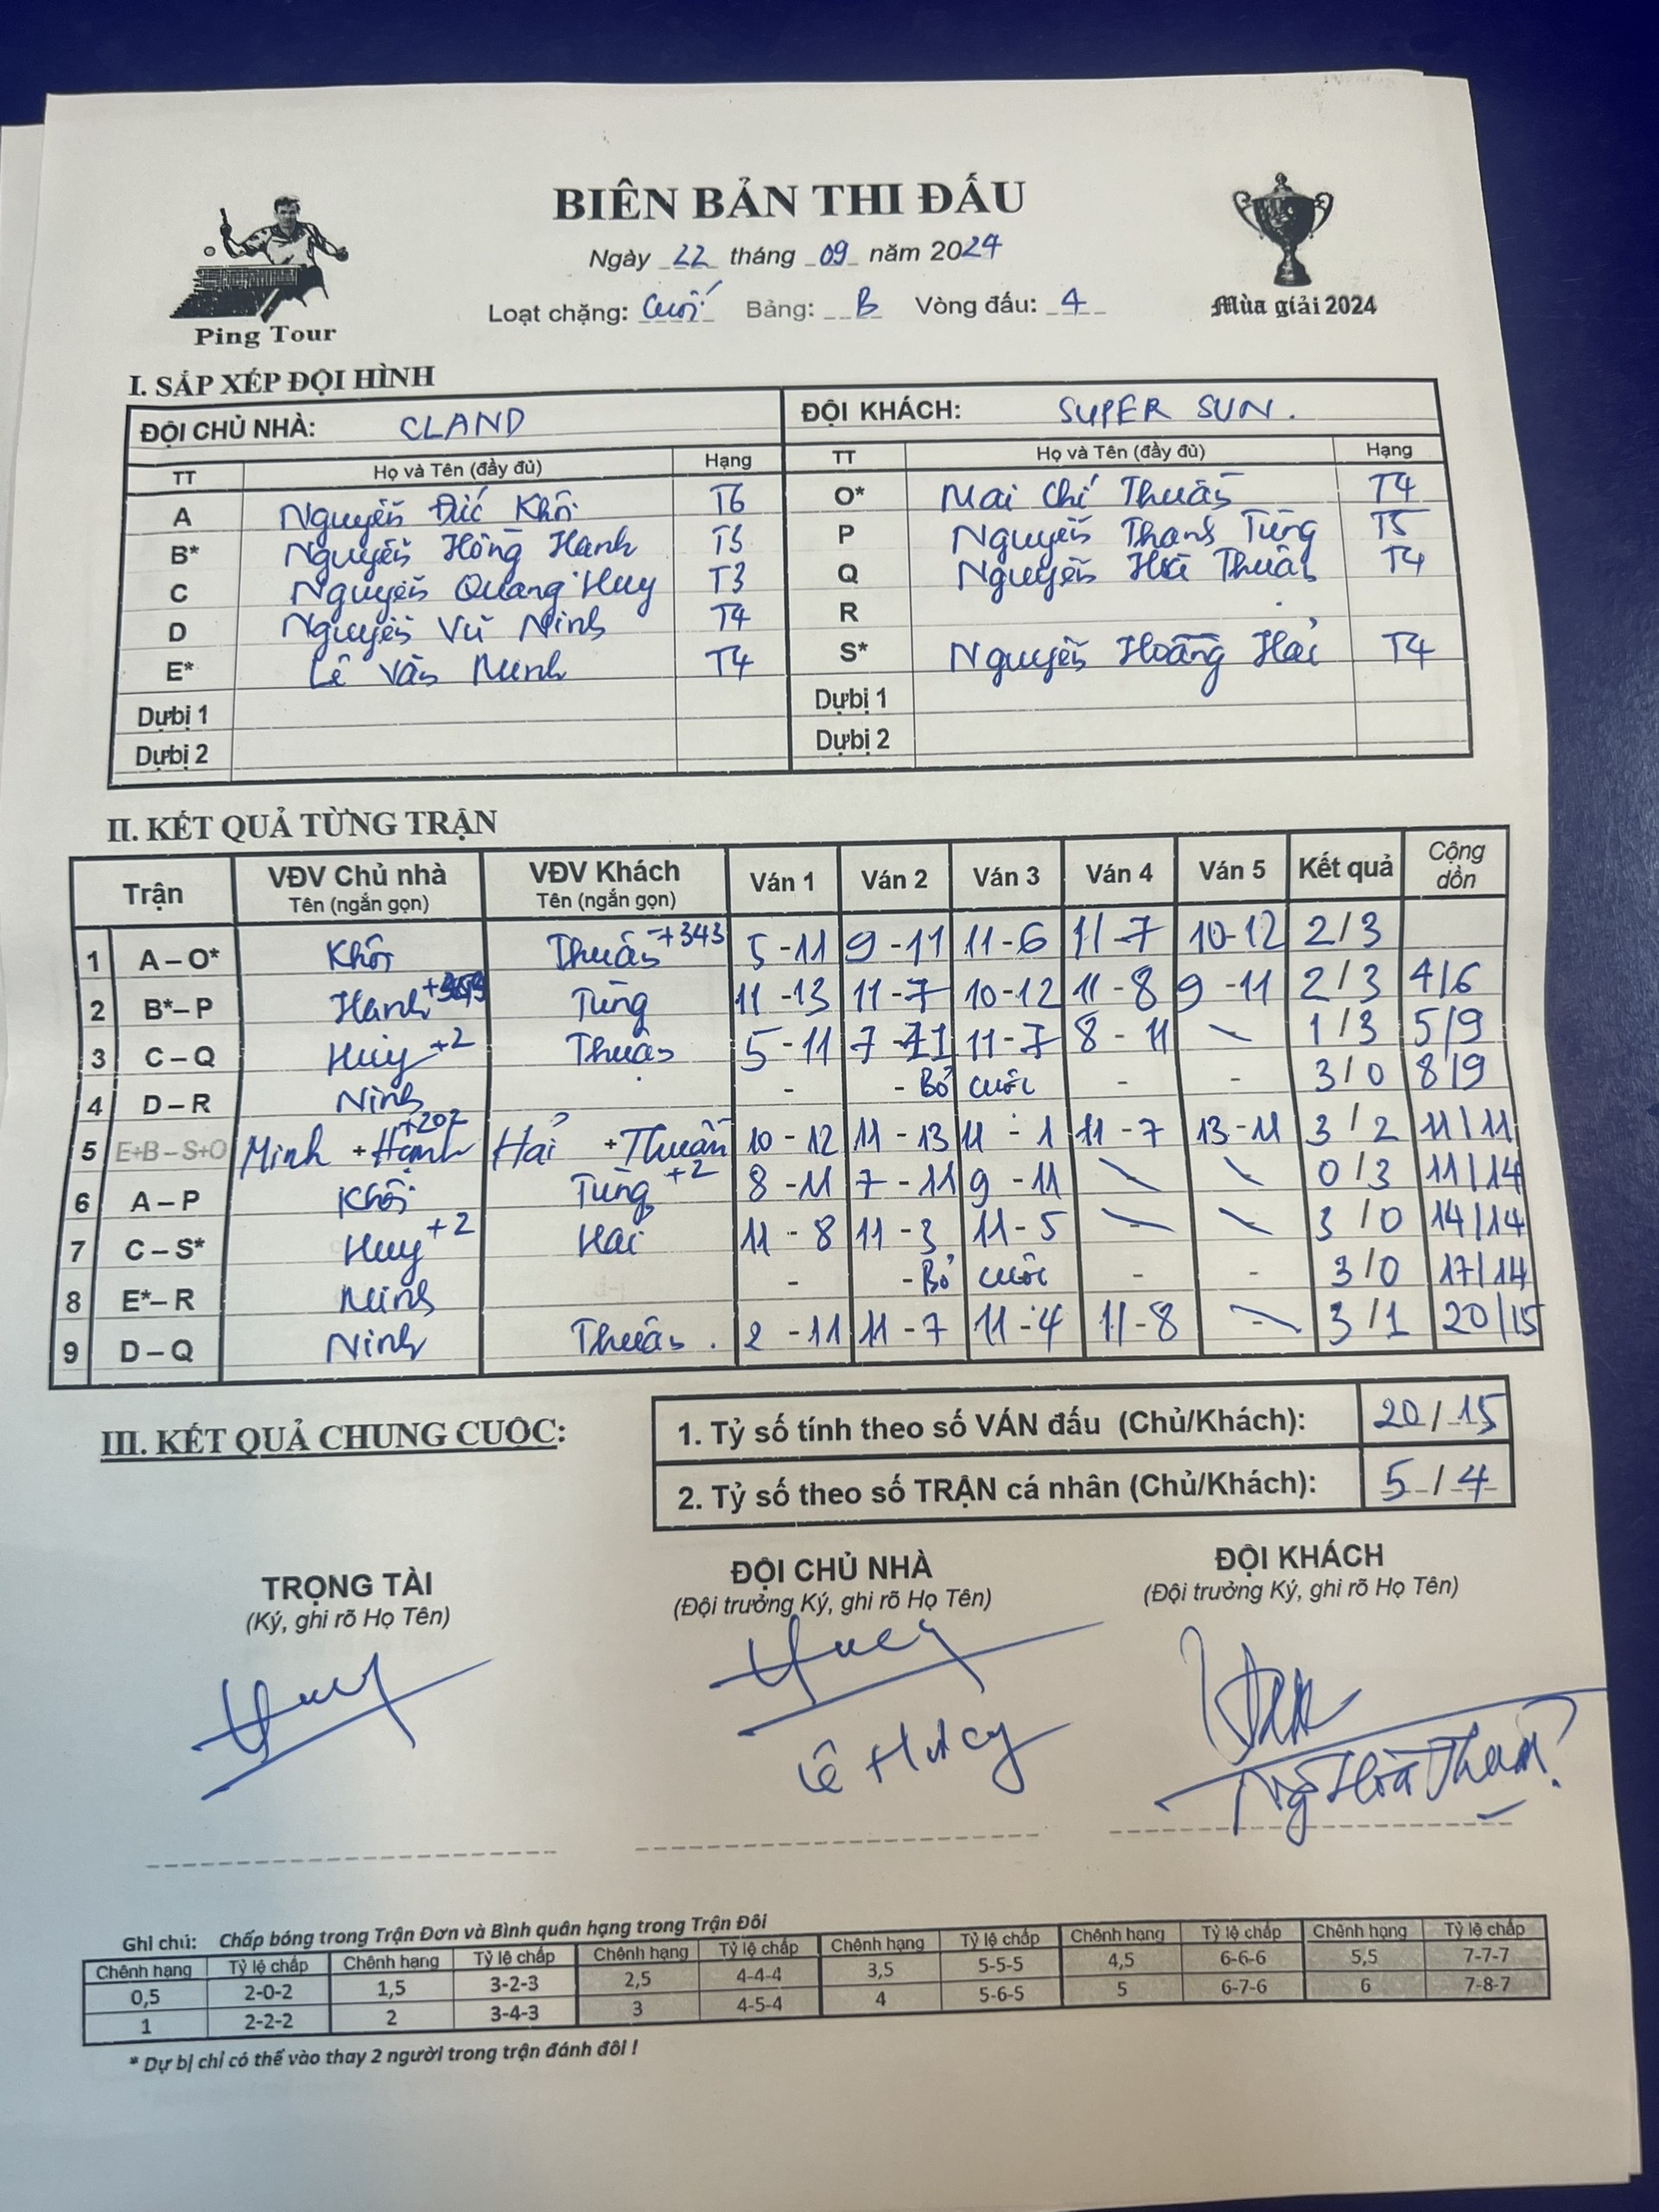 BIÊN BẢN THI ĐẤU
Ngày 22 tháng 09 năm 2024
Loạt chặng: Cuối Bảng: B Vòng đấu: 4
Ping Tour
Mùa giải 2024
I. SẮP XẾP ĐỘI HÌNH
ĐỘI CHỦ NHÀ: CLAND ĐỘI KHÁCH: SUPER SUN.
TT Họ và Tên (đầy đủ) Hạng TT Họ và Tên (đầy đủ) Hạng
A Nguyễn Đức Khôi T6 O* Mai Chí Thuần T4
B* Nguyễn Hồng Hạnh P Nguyễn Thanh Tùng T5
C Nguyễn Quang Huy T3 Q Nguyễn Hoà Thuận T4
D Nguyễn Vũ Ninh T4 R
E* Lê Văn Minh T4 S* Nguyễn Hoàng Hải T4
Dự bị 1 Dự bị 1
Dự bị 2 Dự bị 2
II. KẾT QUẢ TỪNG TRẬN
Trận VĐV Chủ nhà Tên (ngắn gọn) VĐV Khách Tên (ngắn gọn) Ván 1 Ván 2 Ván 3 Ván 4 Ván 5 Kết quả Cộng dồn
1 A – O* Khôi Thuần +343 5 - 11 9 - 11 11 - 6 11 - 7 10 - 12 2 / 3
2 B* – P Hạnh Tùng 11 - 13 11 - 7 10 - 12 11 - 8 9 - 11 2 / 3 4/6
3 C – Q Huy +2 Thuận 5 - 11 7 - 11 11 - 7 8 - 11 \ 1 / 3 5/9
4 D – R Ninh - - Bỏ cuộc - - 3 / 0 8/9
5 E+B – S+O Minh + Hạnh +202 Hải + Thuần 10 - 12 11 - 13 11 - 1 11 - 7 13 - 11 3 / 2 11/11
6 A – P Khôi Tùng +2 8 - 11 7 - 11 9 - 11 \ \ 0 / 3 11/14
7 C – S* Huy +2 Hải 11 - 8 11 - 3 11 - 5 \ \ 3 / 0 14/14
8 E* – R Minh - - Bỏ cuộc - - 3 / 0 17/14
9 D – Q Ninh Thuận . 2 - 11 11 - 7 11 - 4 11 - 8 \ 3 / 1 20/15
III. KẾT QUẢ CHUNG CUỘC:
1. Tỷ số tính theo số VÁN đấu (Chủ/Khách): 20 / 15
2. Tỷ số theo số TRẬN cá nhân (Chủ/Khách): 5 / 4
TRỌNG TÀI ĐỘI CHỦ NHÀ ĐỘI KHÁCH
(Ký, ghi rõ Họ Tên) (Đội trưởng Ký, ghi rõ Họ Tên) (Đội trưởng Ký, ghi rõ Họ Tên)
Lê Huy
Ghi chú: Chấp bóng trong Trận Đơn và Bình quân hạng trong Trận Đôi
Chênh hạng Tỷ lệ chấp Chênh hạng Tỷ lệ chấp Chênh hạng Tỷ lệ chấp Chênh hạng Tỷ lệ chấp Chênh hạng Tỷ lệ chấp Chênh hạng Tỷ lệ chấp
0,5 2-0-2 1,5 3-2-3 2,5 4-4-4 3,5 5-5-5 4,5 6-6-6 5,5 7-7-7
1 2-2-2 2 3-4-3 3 4-5-4 4 5-6-5 5 6-7-6 6 7-8-7
* Dự bị chỉ có thể vào thay 2 người trong trận đánh đôi !